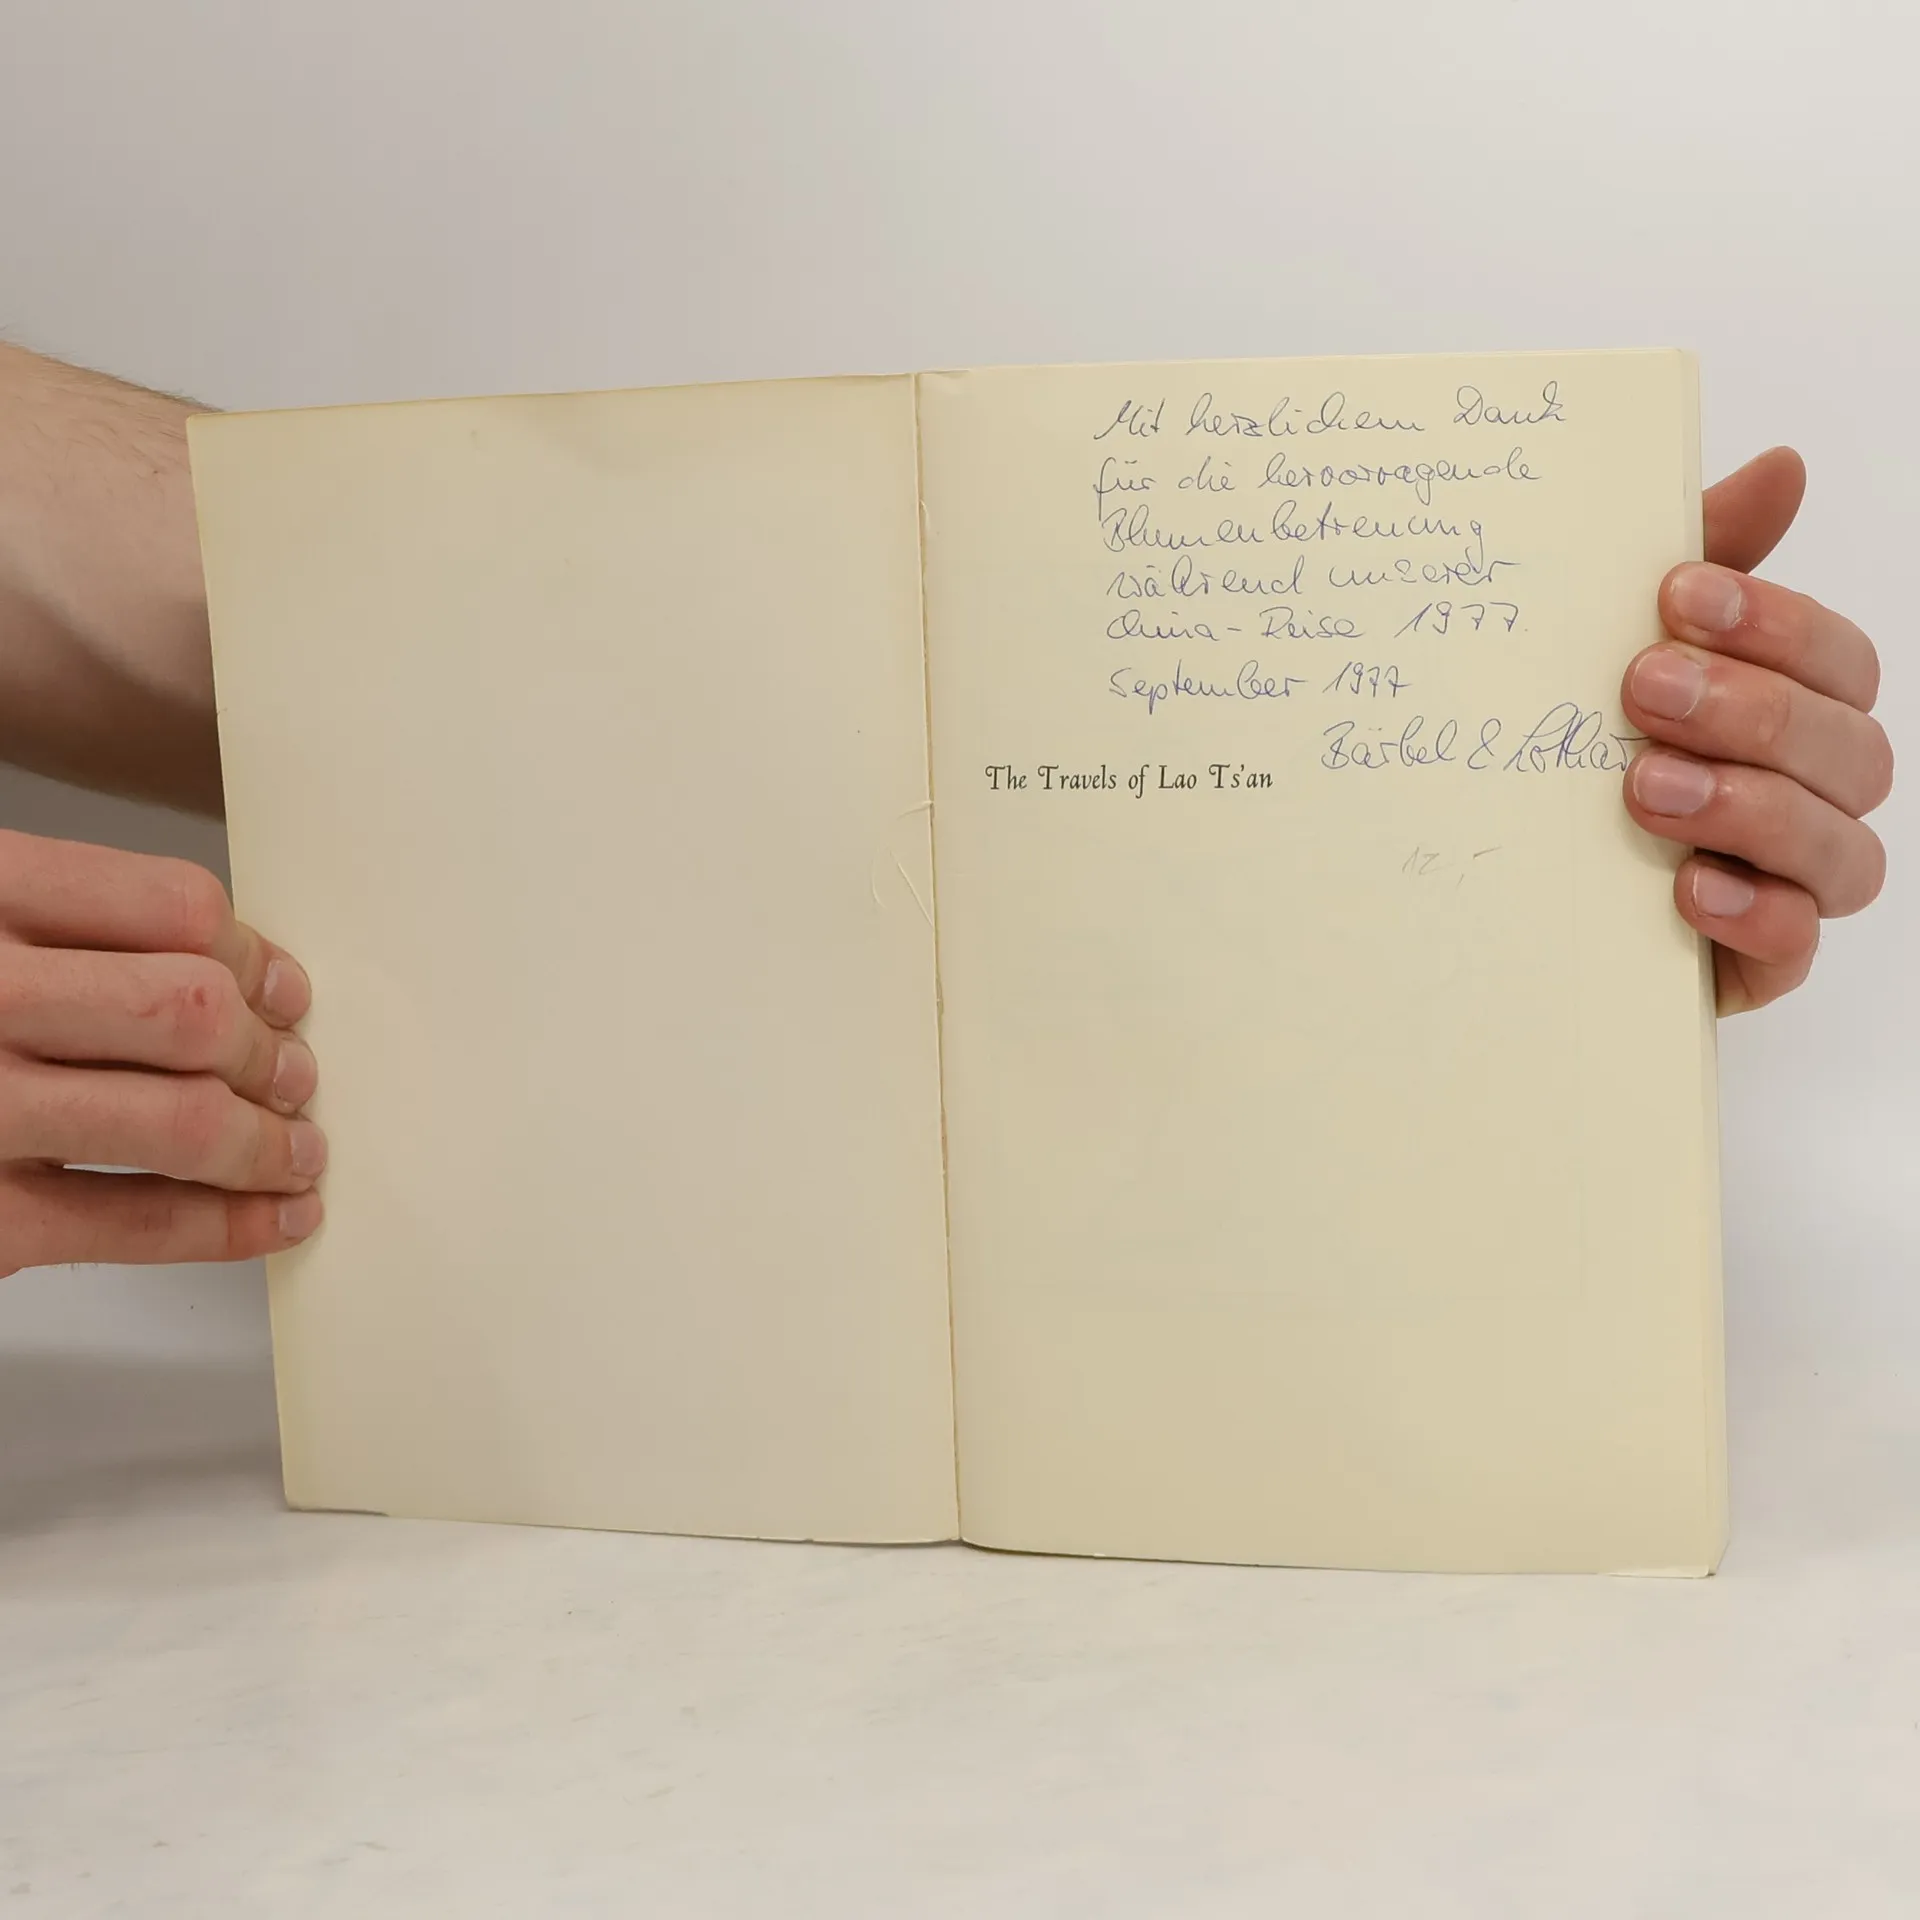 Mit herzlichem Dank
für die hervorragende
Blumenbetreuung
während unserer
China-Reise 1977.
September 1977
Bärbel & Lothar
The Travels of Lao Ts'an
12,-